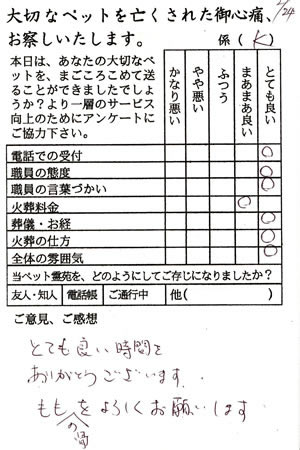 大切なペットを亡くされた御心痛、
お察しいたします。 係(K) 2/24
本日は、あなたの大切なペ
ットを、まごころこめて送
ることができましたでしょ
うか?より一層のサービス
向上のためにアンケートに
ご協力下さい。
かなり悪い やや悪い ふつう まあまあ良い とても良い
電話での受付 ○
職員の態度 ○
職員の言葉づかい ○
火葬料金 ○
葬儀・お経 ○
火葬の仕方 ○
全体の雰囲気 ○
当ペット霊苑を、どのようにしてご存じになりましたか?
友人・知人 電話帳 ご通行中 他( )
ご意見、ご感想
とても良い時間を
ありがとうございます。
もも の骨 をよろしくお願いします